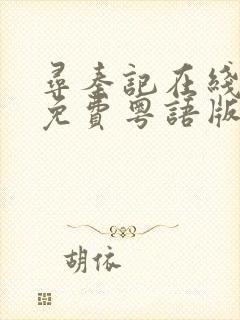 尋秦記在綫
免費粵語版
胡依